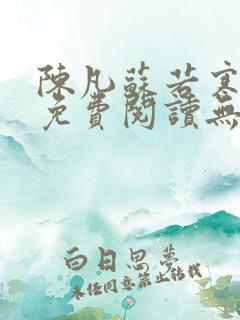 陳凡蘇若寒
免費閱讀無
白日思夢
未經同意禁止轉載